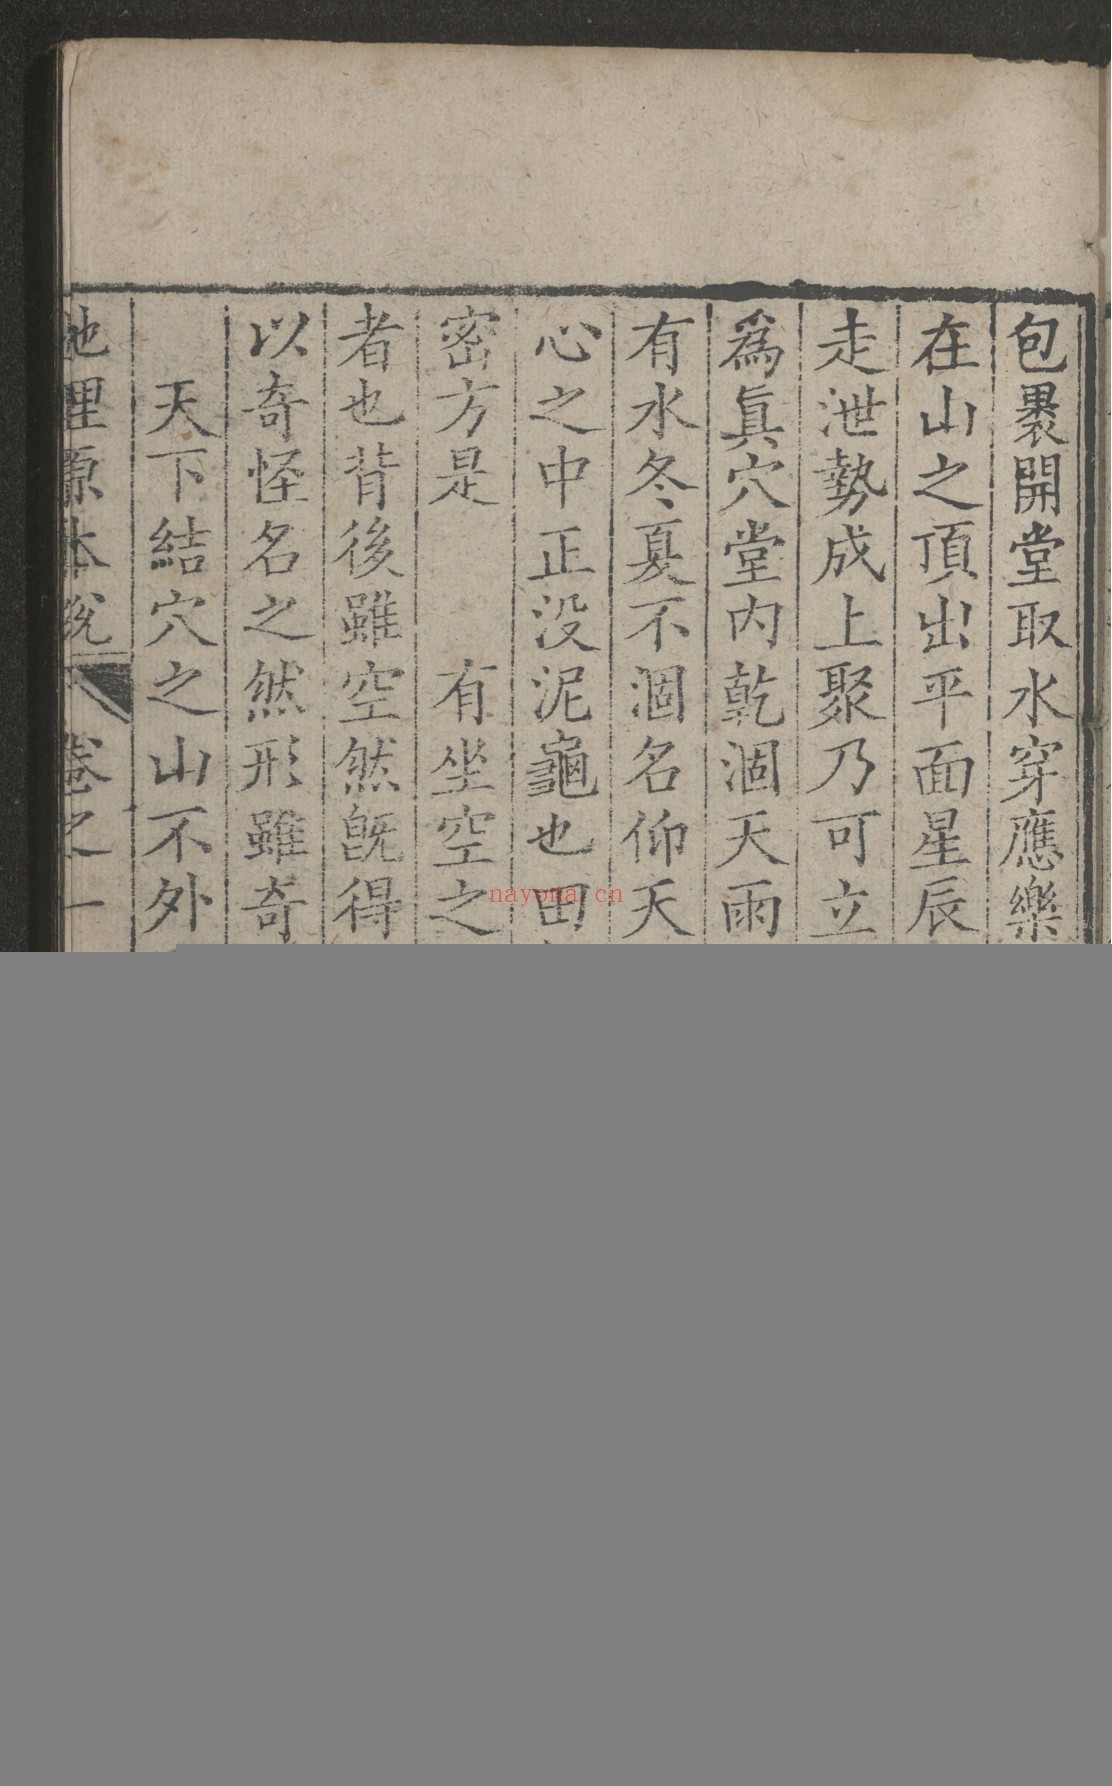 包裹開堂取水穿應樂
在山之頂出平面星辰
走泄勢成上聚乃可立
爲眞穴堂内乾涸天雨
有水冬夏不涸名仰天
心之中正没泥龜也田
密方是　有坐空之
者也背後雖空然既得
以奇怪名之然形雖奇
天下結穴之山不外
地理原本說 卷之一
nayona.cn